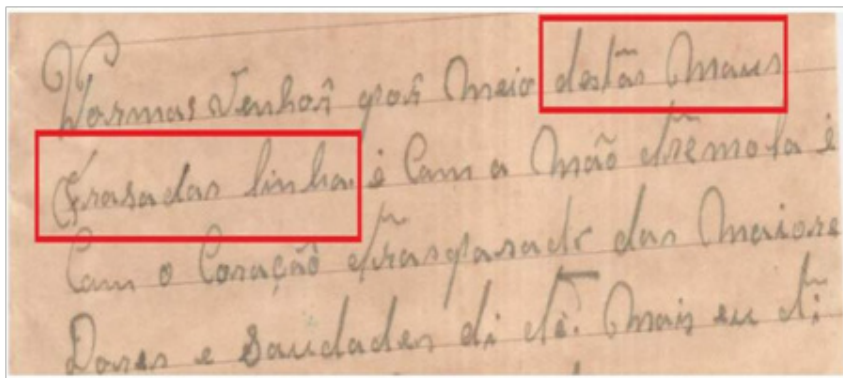 Vormas Venhoî por meio destãs Maus
Frasadas linha. é Com a Mão trêmola é
Com o Coração traspasado das Maiore
Dores e Saudades di tê. Mais eu ti